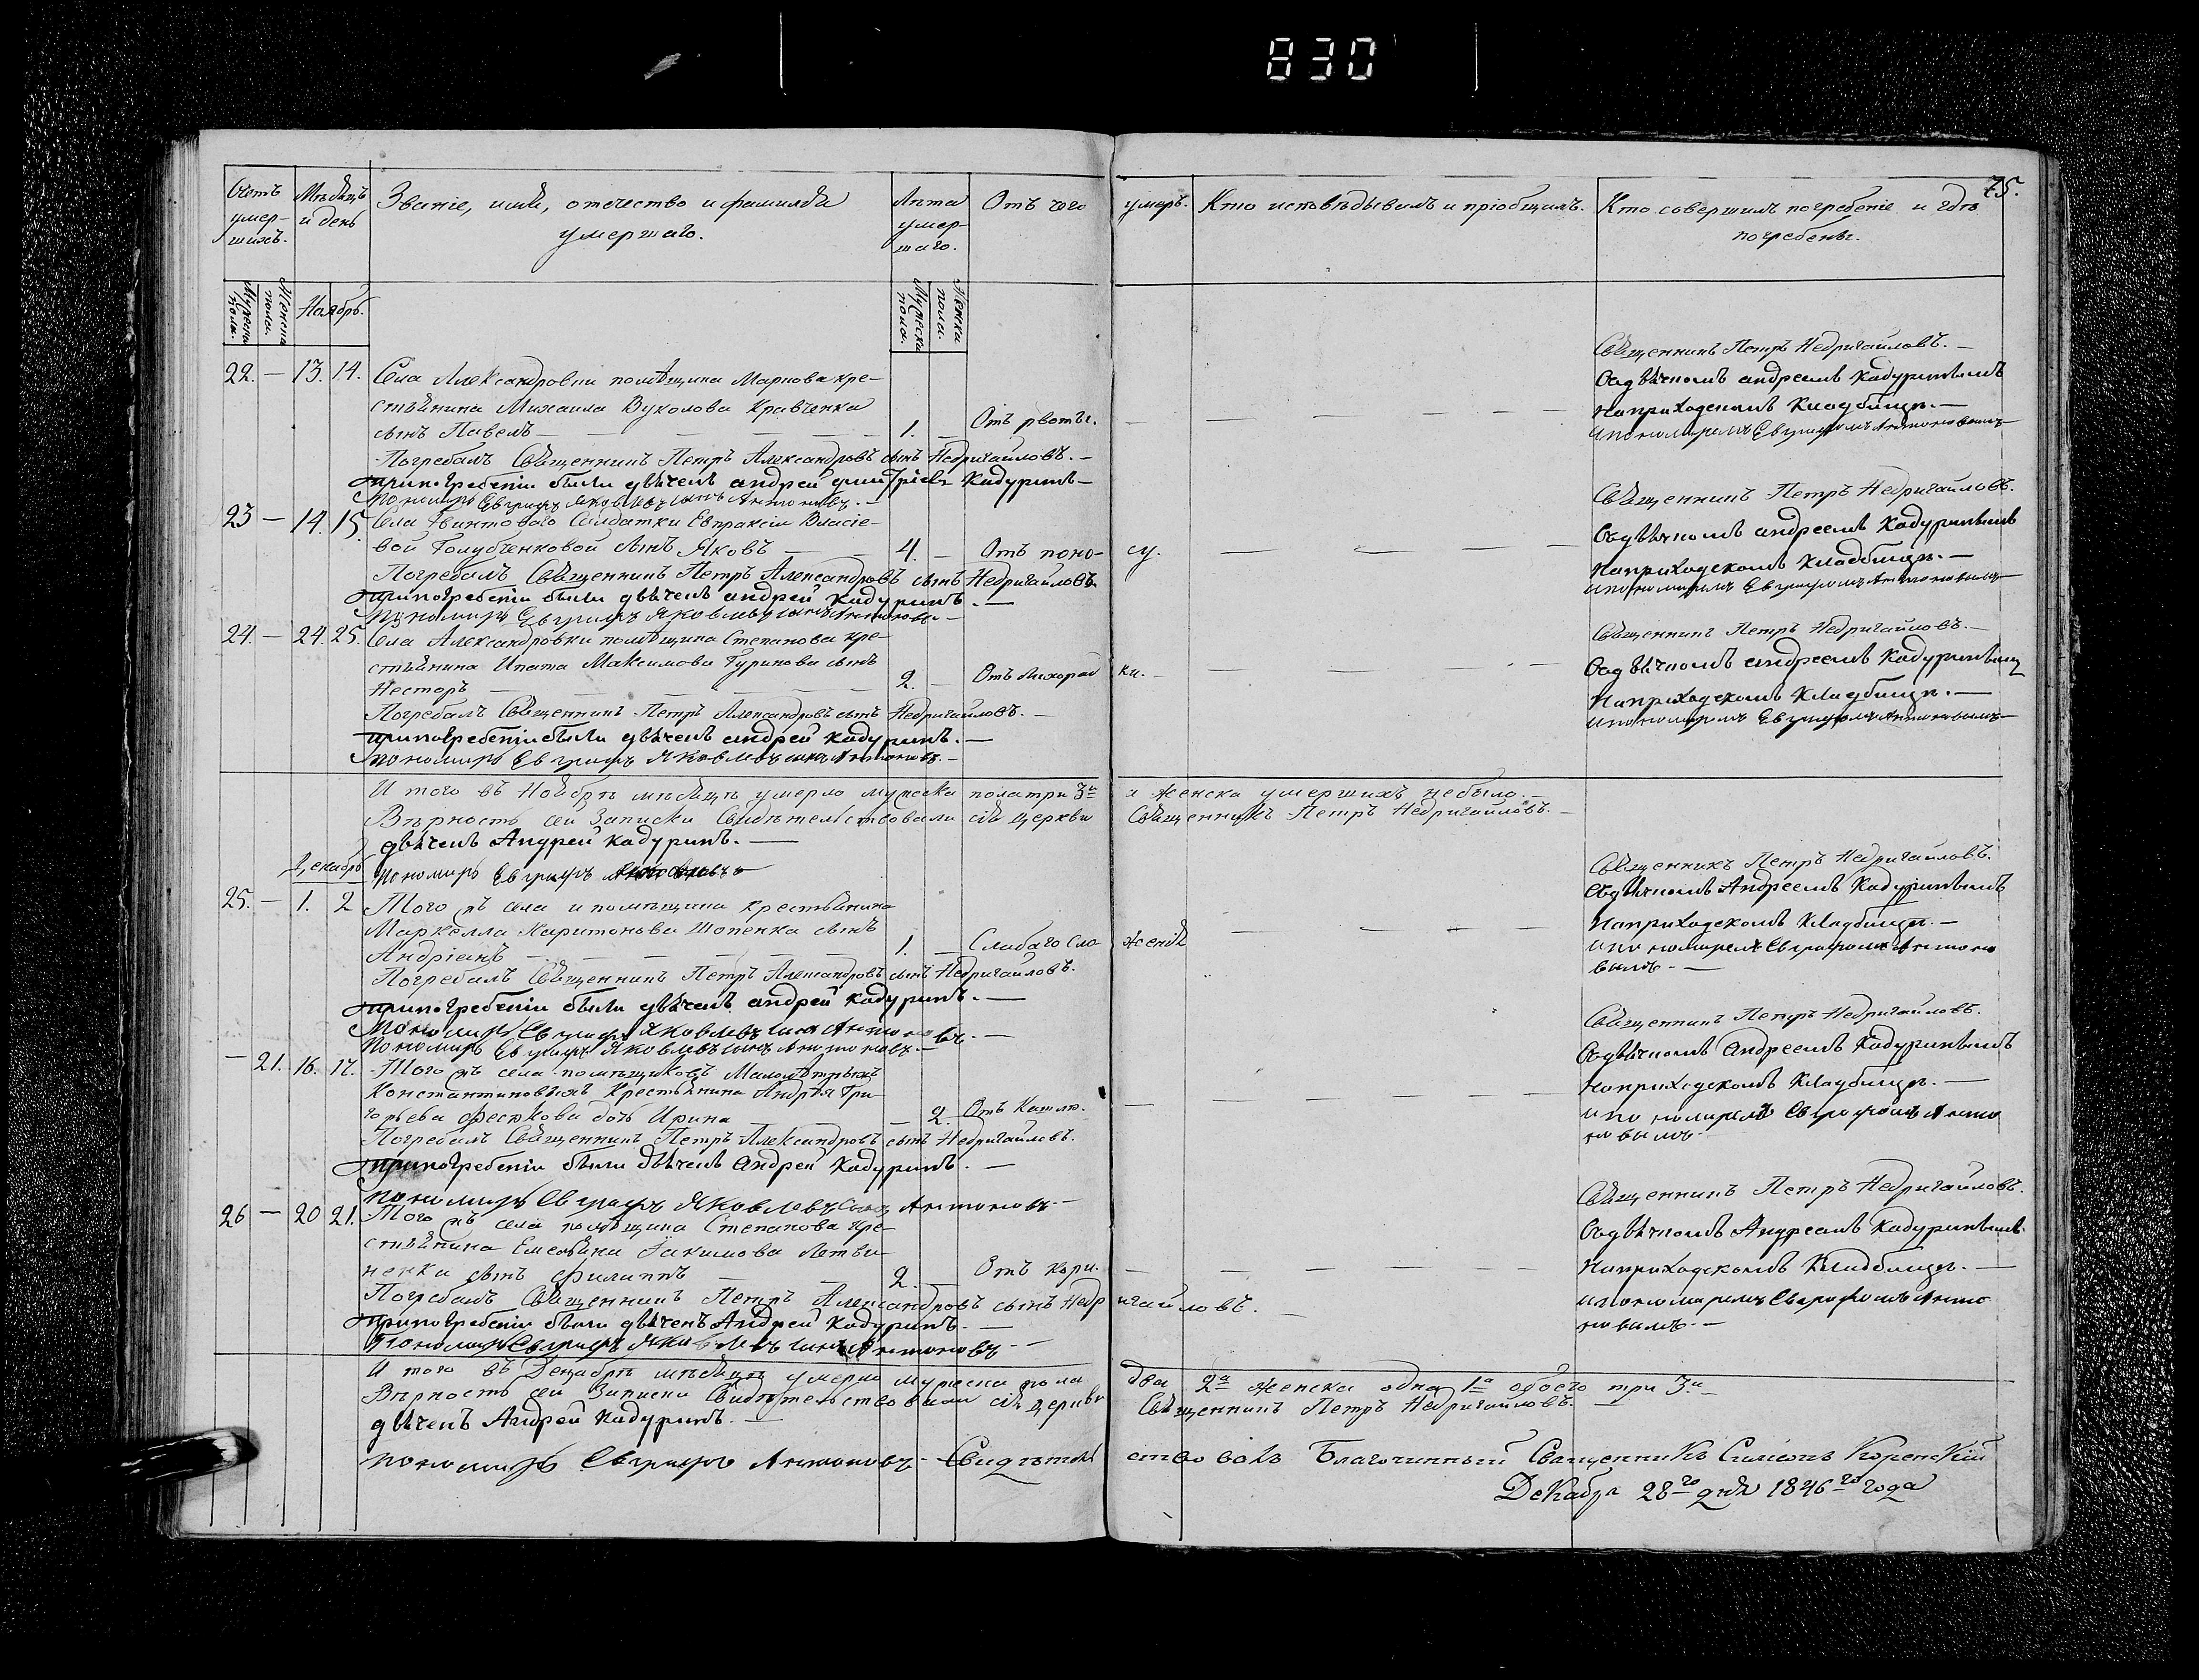 830
75.
Счетъ умер-шихъ.
Мѣсяцъ и день
Званіе, имя, отечество и фамилія умершаго.
Лѣта умер-шаго.
Отъ чего умеръ.
Кто исповѣдывалъ и пріобщилъ.
Кто совершилъ погребеніе и гдѣ погребены.
Мужеска пола.
Женска пола.
Ноябрь.
Мужеска пола.
Женска пола.
22. — 13. 14. Села Александровки помѣщика Маркова кре-
стьянина Михаила Вуколова Кравченка
сынъ Павелъ — 1. — Отъ рвоты.
Погребалъ Священникъ Петръ Александровъ сынъ Недригайловъ. —
при погребеніи были дьячекъ андрей дмитріевъ Кадуринъ —
Пономарь Евграфъ Яковлевъ сынъ Антоновъ. —
Священникъ Петръ Недригайловъ. —
Съ дьячкомъ андреемъ Кадуринымъ
На приходскомъ Кладбищѣ. —
и пономаремъ Евграфомъ Антоновымъ
23 — 14. 15. Села Солдатки Евпраксіи Власіе-
вой Голубченковой сынъ Яковъ — 4. — Отъ поно- су.
Погребалъ Священникъ Петръ Александровъ сынъ Недригайловъ.
при погребеніи были дьячекъ андрей Кадуринъ. —
Пономарь Евграфъ Яковлевъ сынъ Антоновъ —
Священникъ Петръ Недригайловъ.
Съ дьячкомъ андреемъ Кадуринымъ
На приходскомъ Кладбищѣ. —
и пономаремъ Евграфомъ Антоновымъ
24. — 24. 25. Села Александровки помѣщика Степанова кре-
стьянина Ипата Максимова Гуринова сынъ
Несторъ — 2. — Отъ лихорад ки. —
Погребалъ Священникъ Петръ Александровъ сынъ Недригайловъ. —
при погребеніи были дьячекъ андрей Кадуринъ. —
пономарь Евграфъ Яковлевъ сынъ Антоновъ. —
Священникъ Петръ Недригайловъ. —
Съ дьячкомъ андреемъ Кадуринымъ
На приходскомъ Кладбищѣ. —
и пономаремъ Евграфомъ Антоновымъ —
И того въ Ноябрѣ мѣсяцѣ умерло мужеска пола три 3и а женска умершихъ небыло. —
Вѣрность сей записки Свидѣтельствовали сія церкви Священникъ Петръ Недригайловъ. —
дьячекъ Андрей Кадуринъ. —
Пономарь Евграфъ Антоновъ
Декабрь
25. — 1. 2 Того жъ села и помѣщика крестьянина
Маркелла Харитонова сынъ
Андріанъ — 1. — Слабаго сло женія
Погребалъ Священникъ Петръ Александровъ сынъ Недригайловъ.
при погребеніи были дьячекъ андрей Кадуринъ. —
Пономарь Евграфъ Яковлевъ сынъ Антоновъ. —
Пономарь Евграфъ Яковлевъ сынъ Антоновъ. —
Священникъ Петръ Недригайловъ.
Съ дьячкомъ Андреемъ Кадуринымъ
На приходскомъ Кладбищѣ. —
и пономаремъ Евграфомъ Антоно
вымъ. —
— 21. 16. 17. Того жъ села помѣщиковъ Малолѣтныхъ
Константиновыхъ Крестьянина Андрея Гри-
горьева дочь Ирина — 2. Отъ Кашлю.
Погребалъ Священникъ Петръ Александровъ сынъ Недригайловъ.
при погребеніи были дьячекъ Андрей Кадуринъ. —
пономарь Евграфъ Яковлевъ сынъ Антоновъ. —
Священникъ Петръ Недригайловъ.
Съ дьячкомъ Андреемъ Кадуринымъ
На приходскомъ Кладбищѣ. —
и пономаремъ Евграфомъ Анто
новымъ. —
26 — 20 21. Того жъ села помѣщика Степанова кре-
стьянина Емельяна Іакимова Литви-
ненка сынъ Филиппъ — 2. — Отъ кори.
Погребалъ Священникъ Петръ Александровъ сынъ Недр игайловъ.
при погребеніи были дьячекъ Андрей Кадуринъ. —
Пономарь Евграфъ Яковлевъ сынъ Антоновъ —
Священникъ Петръ Недригайловъ.
Съ дьячкомъ Андреемъ Кадуринымъ
На приходскомъ Кладбищѣ. —
и пономаремъ Евграфомъ Анто
новымъ. —
И того въ Декабрѣ мѣсяцѣ умерло мужеска пола два 2а женска одна 1а обоего три 3и
Вѣрность сей Записки Свидѣтельствовали сія церкви Священникъ Петръ Недригайловъ. —
дьячекъ Андрей Кадуринъ. —
пономарь Евграфъ Антоновъ — Свидѣтель ствовалъ Благочинный Священникъ Симеонъ Коренскій
Декабря 28го дня 1846го года